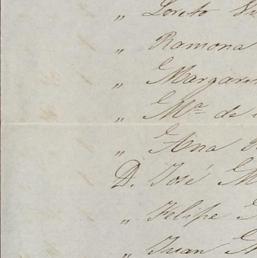 „ Loreto
„ Ramona
„ Margar
„ Mª de
„ Ana
D. José M
„ Felipe
„ Juan